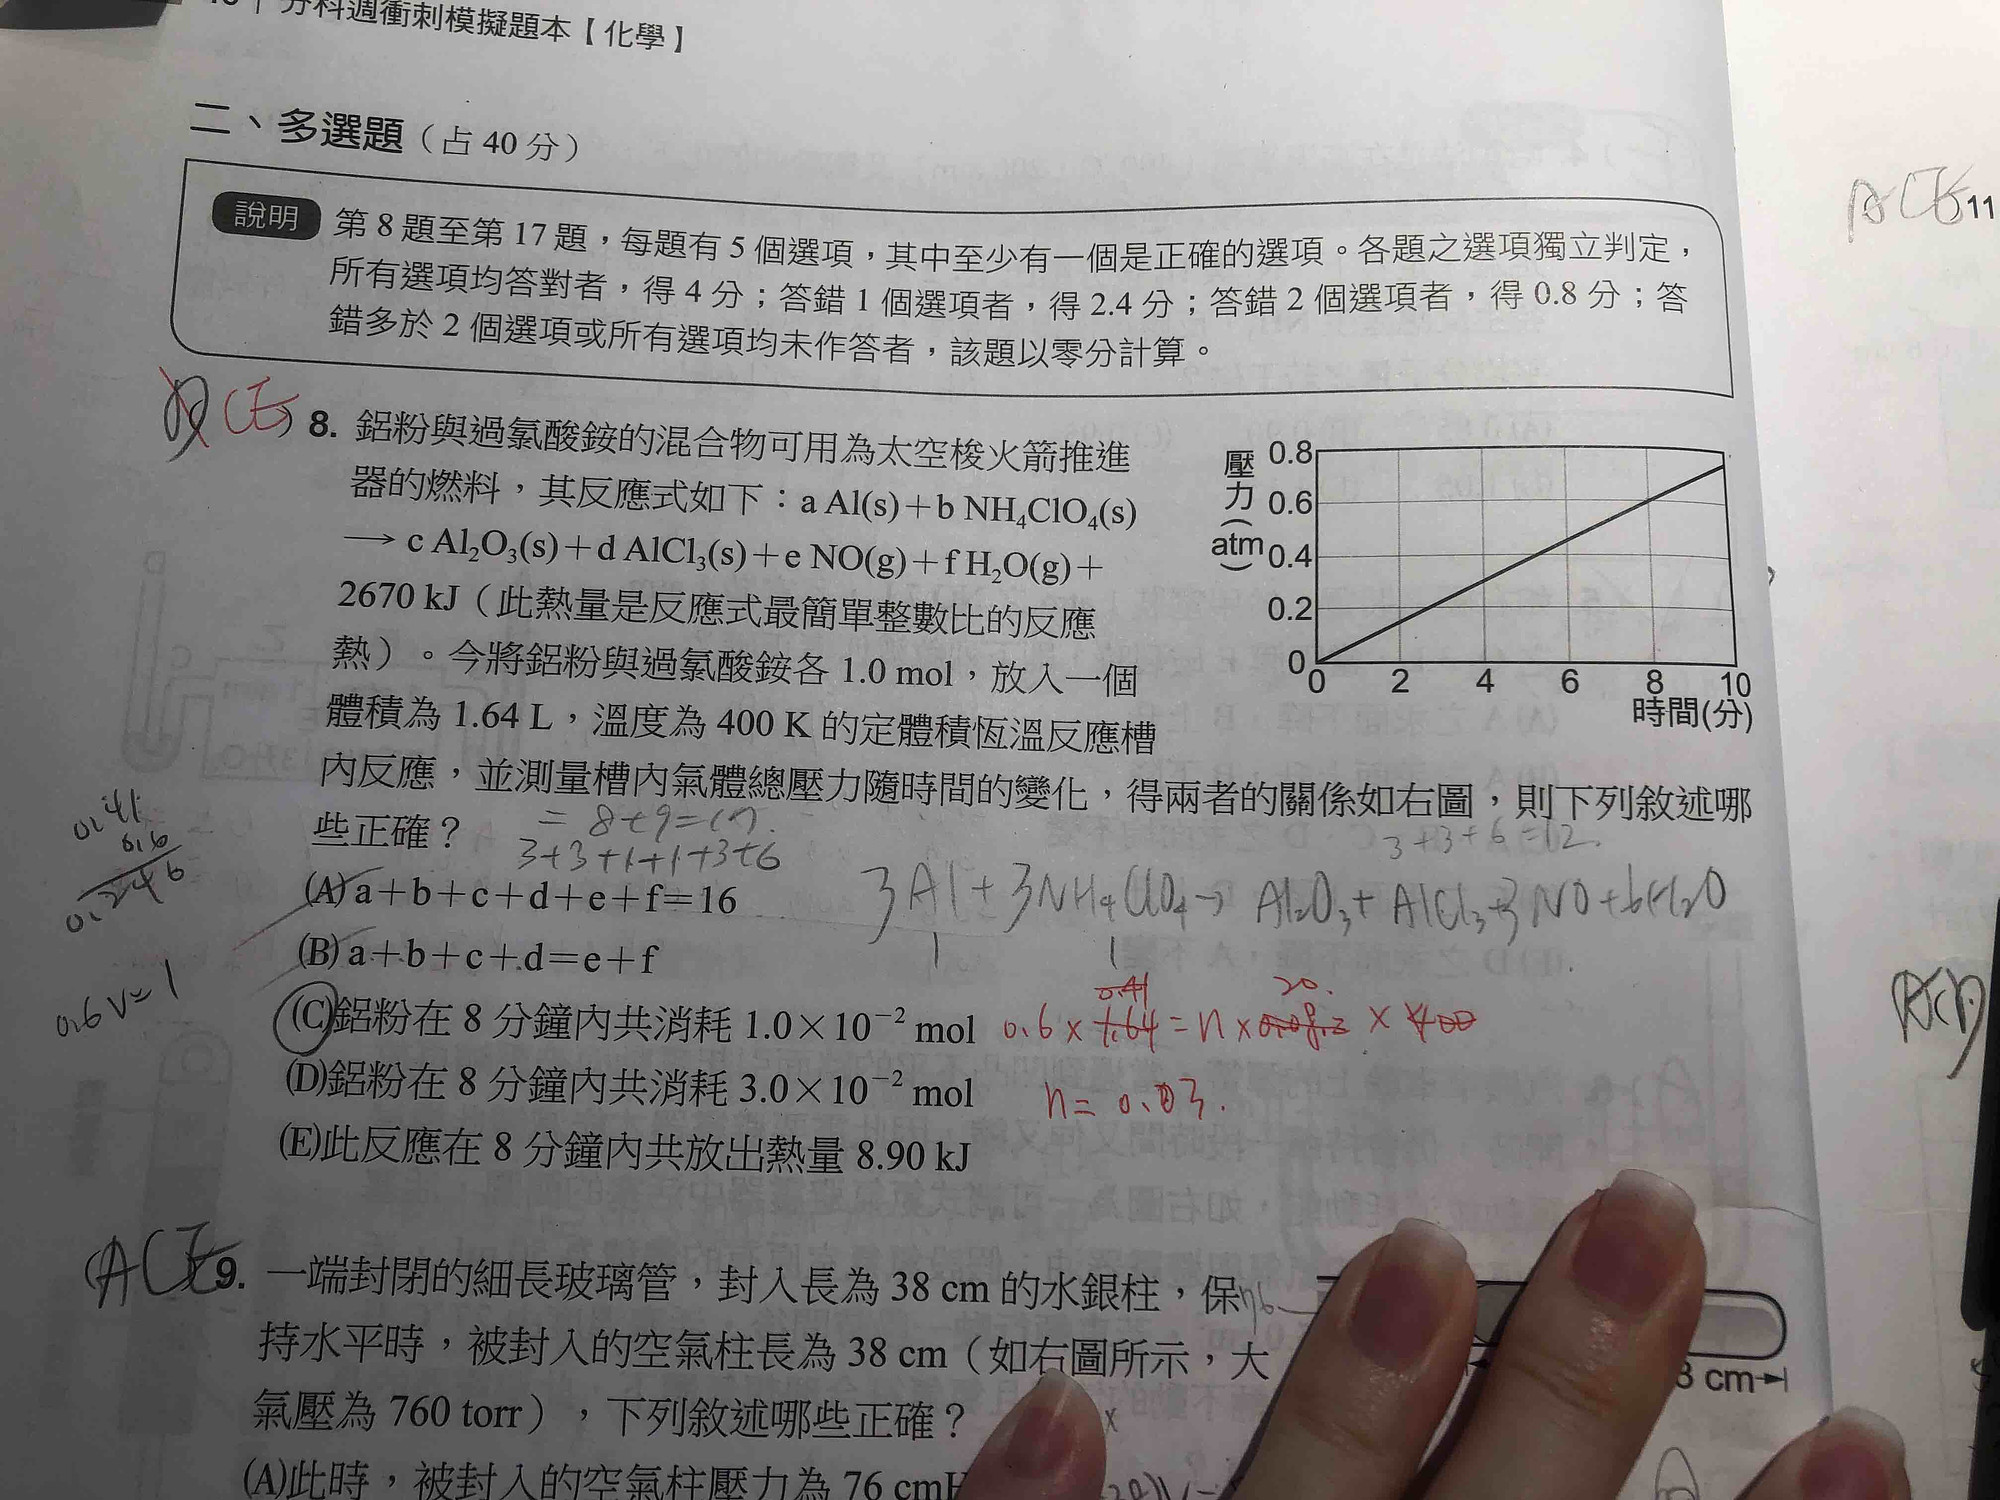 分科週衝刺模擬題本【化學】
二、多選題（占 40 分）
說明
第 8 題至第 17 題，每題有 5 個選項，其中至少有一個是正確的選項。各題之選項獨立判定，
所有選項均答對者，得 4 分；答錯 1 個選項者，得 2.4 分；答錯 2 個選項者，得 0.8 分；答
錯多於 2 個選項或所有選項均未作答者，該題以零分計算。
ACE 11
CE
8. 鋁粉與過氯酸銨的混合物可用為太空梭火箭推進
器的燃料，其反應式如下：a Al(s)＋b NH₄ClO₄(s)
⟶ c Al₂O₃(s)＋d AlCl₃(s)＋e NO(g)＋f H₂O(g)＋
2670 kJ（此熱量是反應式最簡單整數比的反應
熱）。今將鋁粉與過氯酸銨各 1.0 mol，放入一個
體積為 1.64 L，溫度為 400 K 的定體積恆溫反應槽
內反應，並測量槽內氣體總壓力隨時間的變化，得兩者的關係如右圖，則下列敘述哪
些正確？
壓力(atm)
0.8
0.6
0.4
0.2
0
0 2 4 6 8 10
時間(分)
= 8+9=17.
3+3+1+1+3+6
3+3+6=12.
(A) a＋b＋c＋d＋e＋f＝16
3Al+3NH₄ClO₄→Al₂O₃+AlCl₃+3NO+6H₂O
1 1
(B) a＋b＋c＋d＝e＋f
(C)鋁粉在 8 分鐘內共消耗 1.0×10⁻² mol
0.41 20.
0.6×1.64=n×0.082×400
(D)鋁粉在 8 分鐘內共消耗 3.0×10⁻² mol
n=0.03.
(E)此反應在 8 分鐘內共放出熱量 8.90 kJ
0.41
0.6
0.246
0.6V=1
ACE
9. 一端封閉的細長玻璃管，封入長為 38 cm 的水銀柱，保
持水平時，被封入的空氣柱長為 38 cm（如右圖所示，大
氣壓為 760 torr），下列敘述哪些正確？
76
cm
(A)此時，被封入的空氣柱壓力為 76 cmH